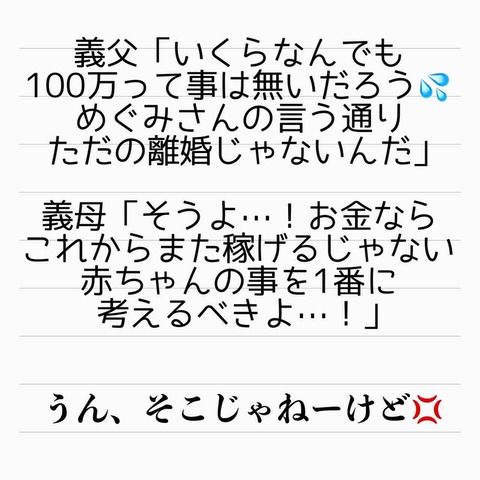 義父「いくらなんでも
100万って事は無いだろう💦
めぐみさんの言う通り
ただの離婚じゃないんだ」
義母「そうよ…！お金なら
これからまた稼げるじゃない
赤ちゃんの事を1番に
考えるべきよ…！」
うん、そこじゃねーけど💢